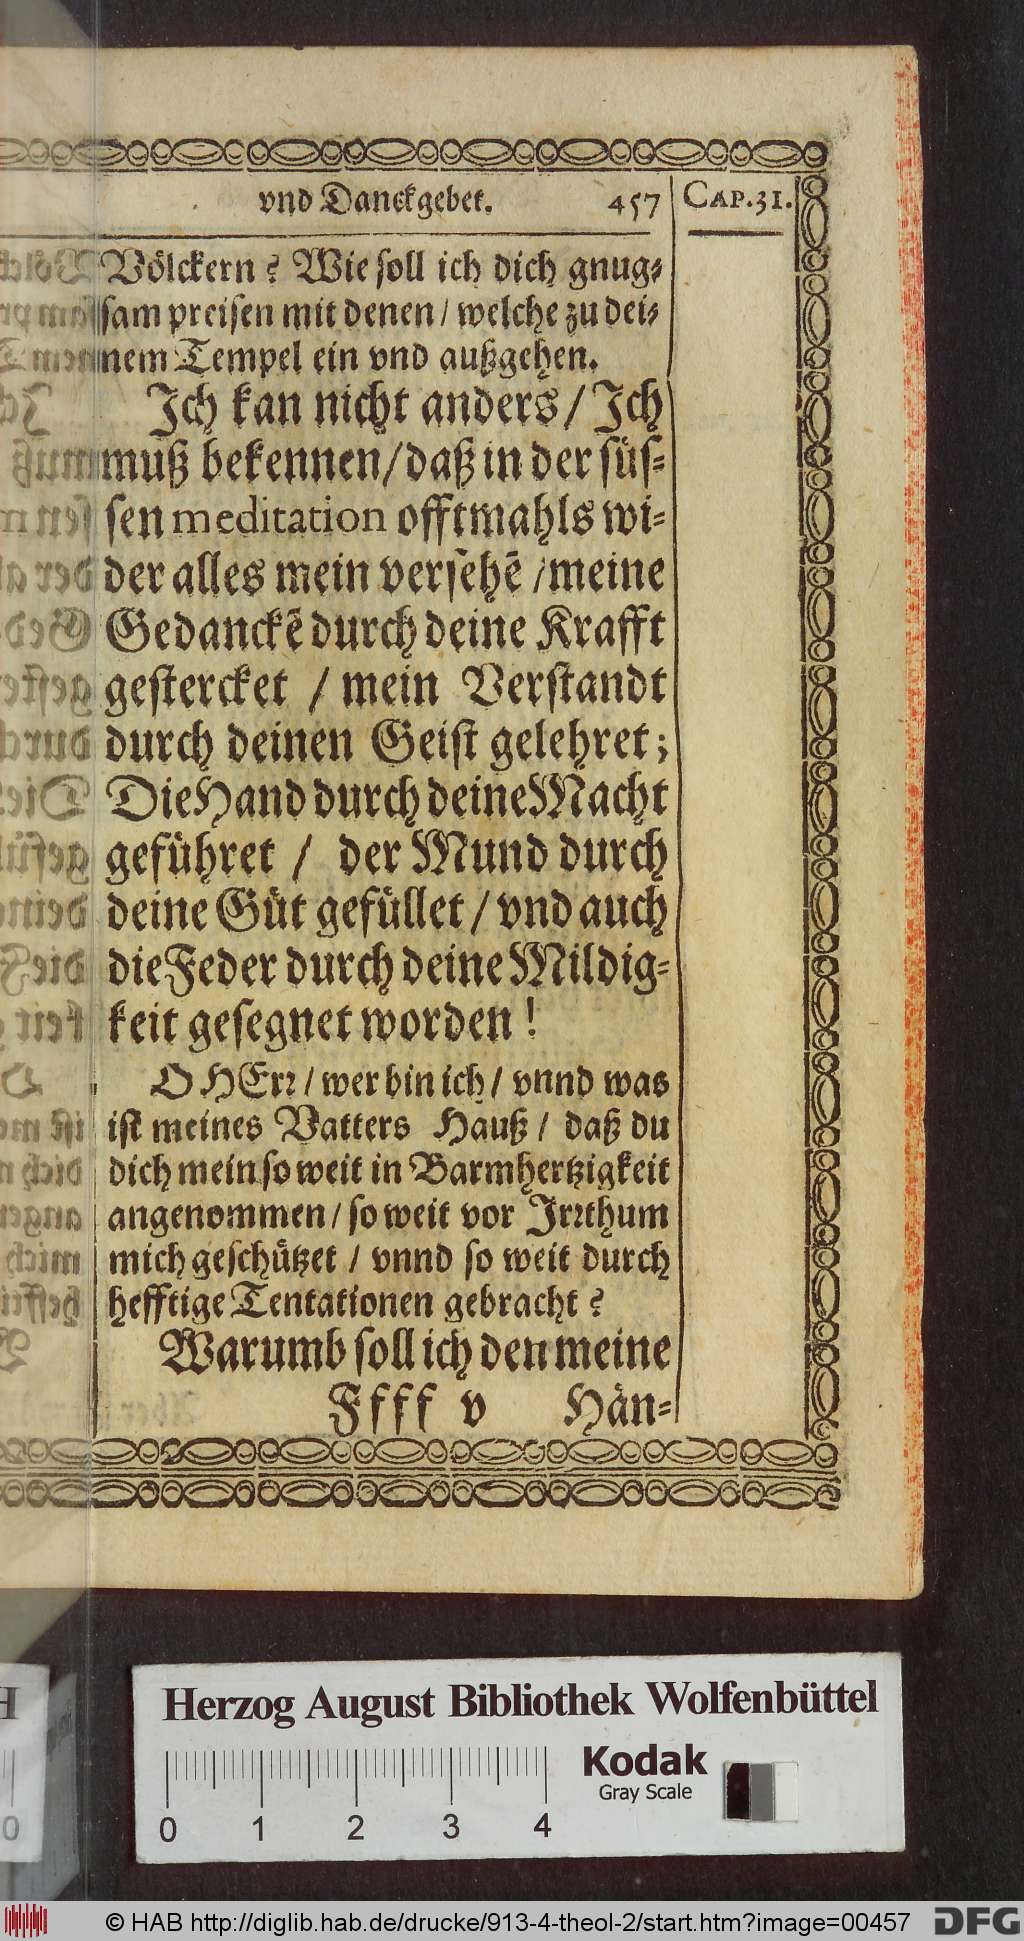 vnd Danckgebet. 457 CAP. 31.
Völckern? Wie soll ich dich gnug-
sam preisen mit denen / welche zu dei-
nem Tempel ein vnd außgehen.
Ich kan nicht anders / Ich
muß bekennen / daß in der süs-
sen meditation offtmahls wi-
der alles mein versehē / meine
Gedanckē durch deine Krafft
gestercket / mein Verstandt
durch deinen Geist gelehret;
Die Hand durch deine Macht
geführet / der Mund durch
deine Güt gefüllet / vnd auch
die Feder durch deine Mildig-
keit gesegnet worden!
O HErr / wer bin ich / vnnd was
ist meines Vatters Hauß / daß du
dich mein so weit in Barmhertzigkeit
angenommen / so weit vor Irrthum
mich geschützet / vnnd so weit durch
hefftige Tentationen gebracht?
Warumb soll ich den meine
Ffff v Hän-
Herzog August Bibliothek Wolfenbüttel
Kodak
Gray Scale
0 1 2 3 4
© HAB http://diglib.hab.de/drucke/913-4-theol-2/start.htm?image=00457 DFG